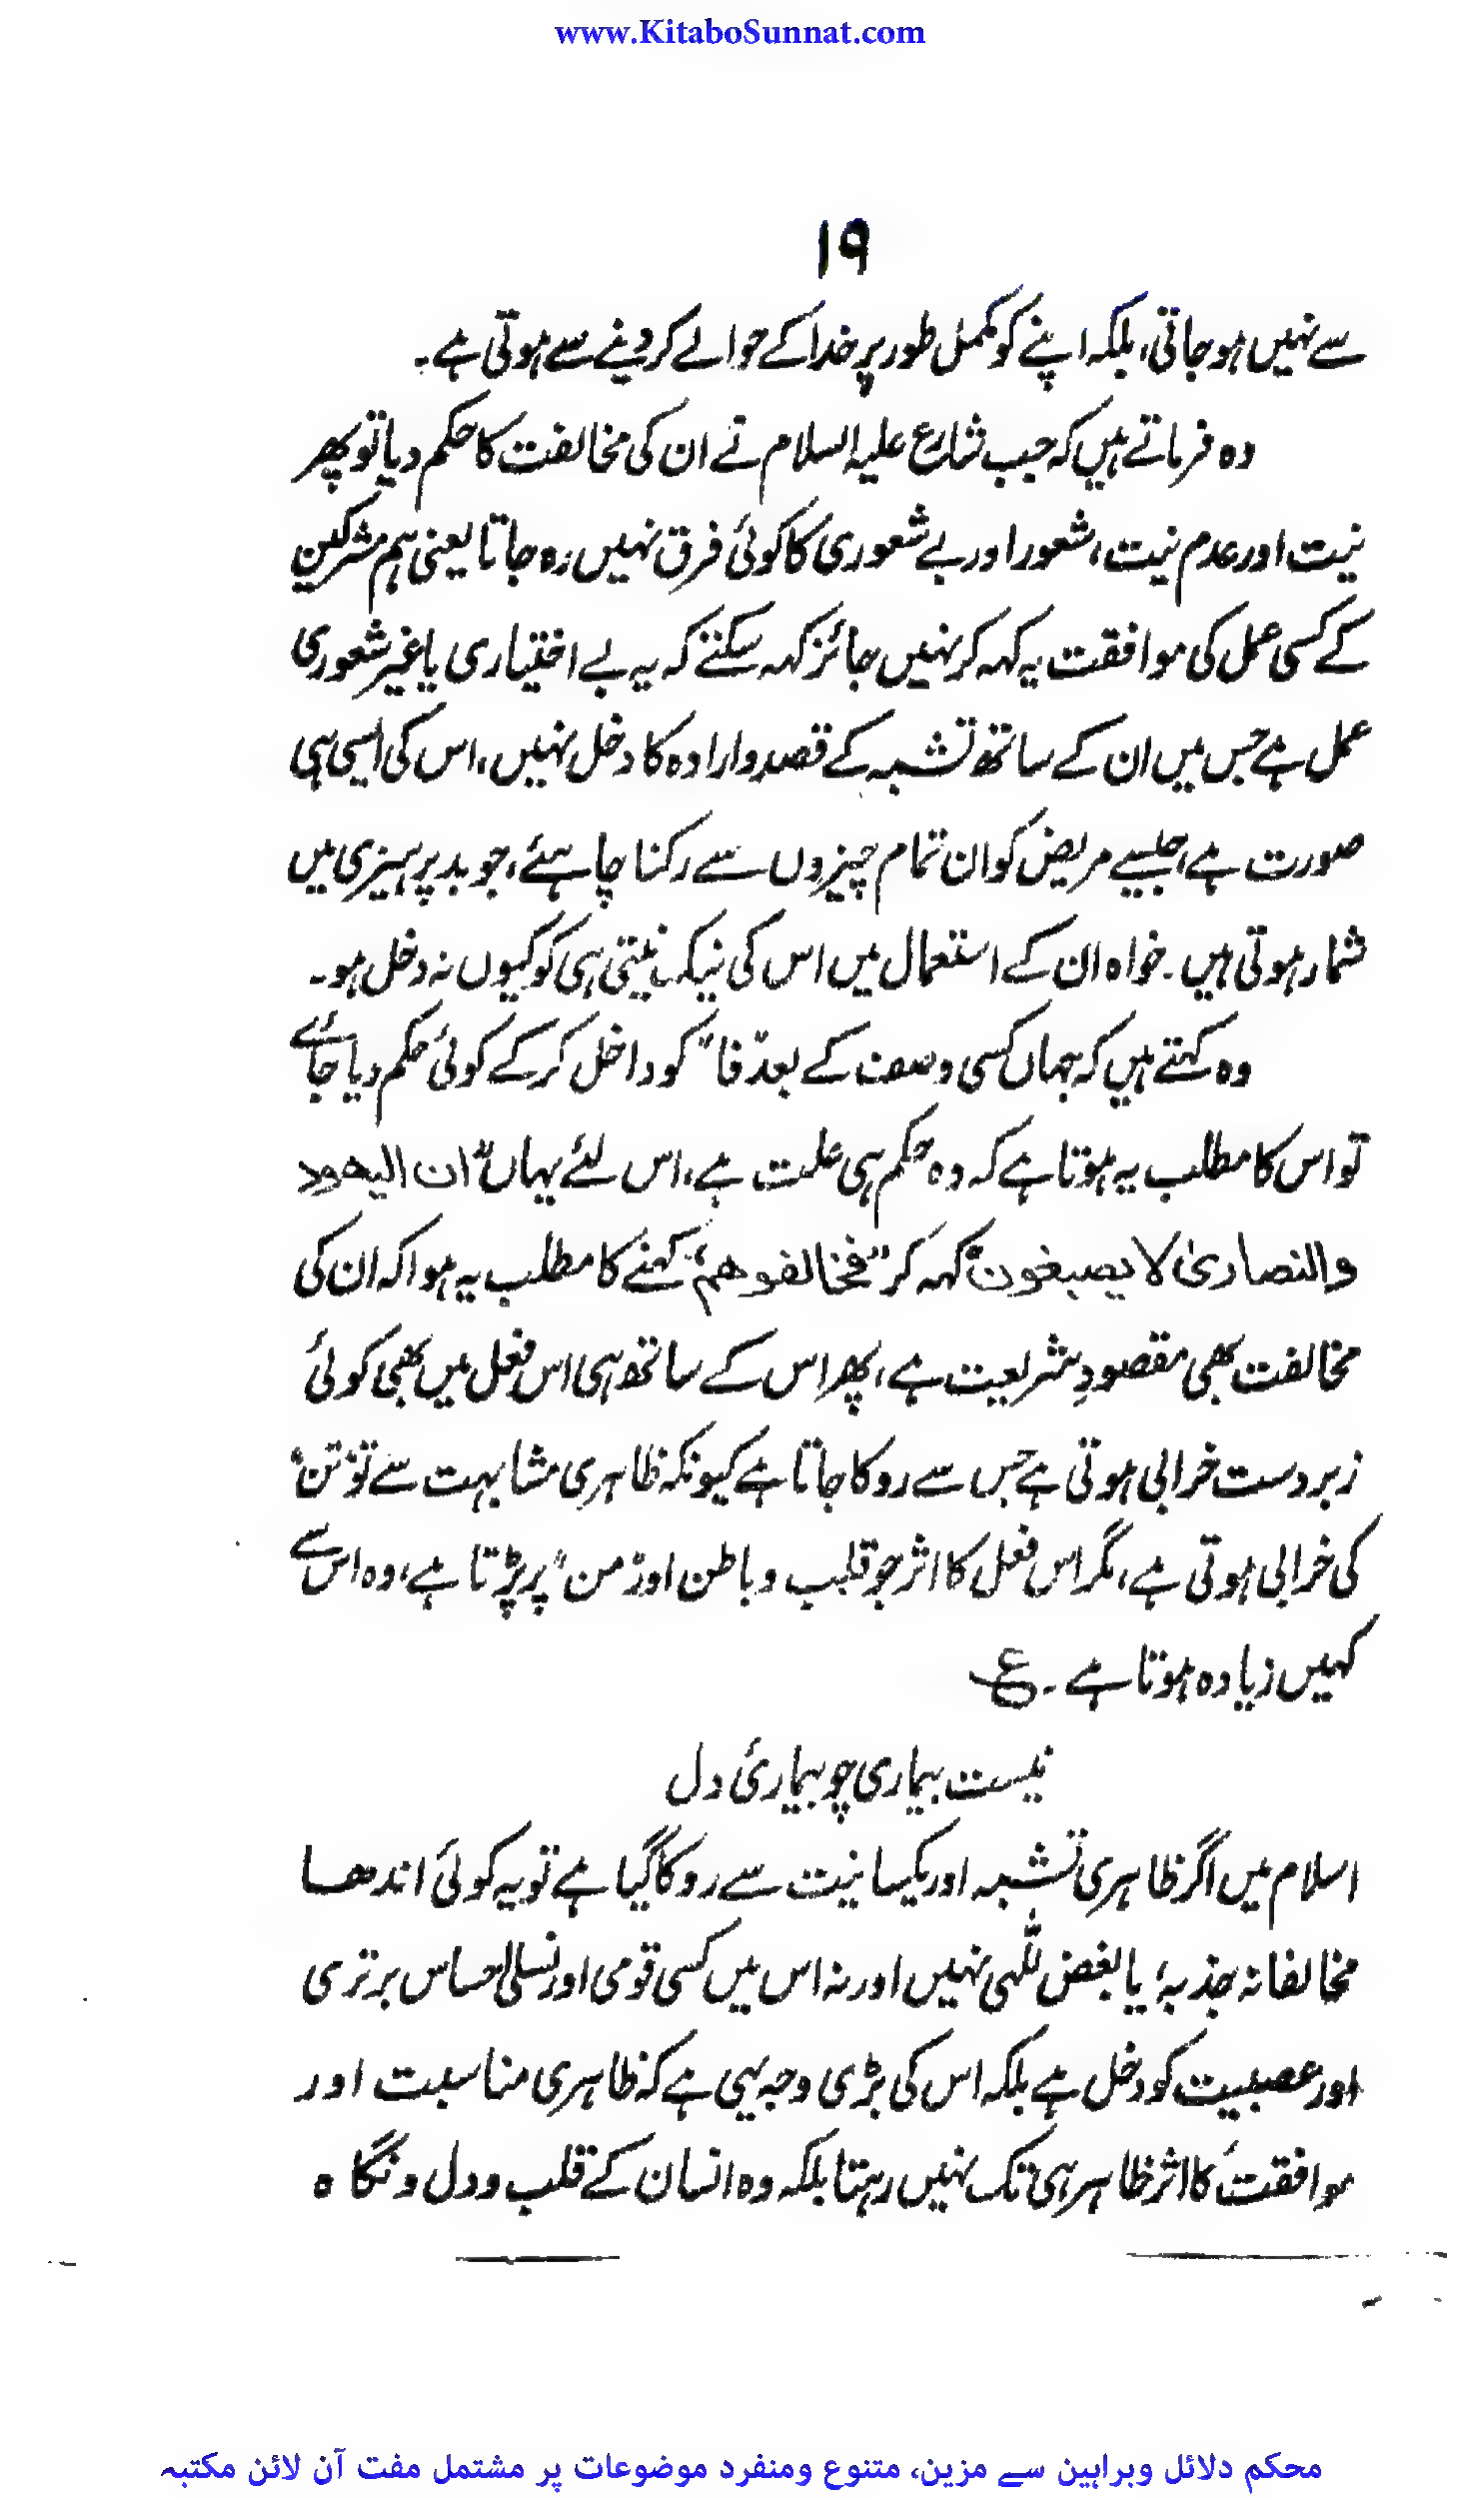 www.KitaboSunnat.com
۱۹
سے نہیں ہو جاتی، بلکہ اپنے کو مکمل طور پر خدا کے حوالے کر دینے سے ہوتی ہے۔
وہ فرماتے ہیں کہ جب شارع علیہ السلام نے ان کی مخالفت کا حکم دیا تو پھر
نیت اور عدم نیت، شعور اور بے شعوری کا کوئی فرق نہیں رہ جاتا یعنی ہم مشرکین
کے کسی عمل کی موافقت یہ کہہ کر نہیں جائز کہہ سکتے کہ یہ بے اختیاری یا غیر شعوری
عمل ہے جس میں ان کے ساتھ تشبہ کے قصد و ارادہ کا دخل نہیں، اس کی ایسی ہی
صورت ہے، جیسے مریض کو ان تمام چیزوں سے رکنا چاہئے، جو بد پرہیزی میں
شمار ہوتی ہیں۔ خواہ ان کے استعمال میں اس کی نیک نیتی ہی کو کیوں نہ دخل ہو۔
وہ کہتے ہیں کہ جہاں کسی وصف کے بعد "فا" کو داخل کر کے کوئی حکم دیا جائے
تو اس کا مطلب یہ ہوتا ہے کہ وہ حکم ہی علت ہے، اس لئے یہاں "ان الیھود
والنصاریٰ لا یصبغون" کہہ کر "فخالفوھم" کہنے کا مطلب یہ ہوا کہ ان کی
مخالفت بھی مقصودِ شریعت ہے، پھر اس کے ساتھ ہی اس فعل میں بھی کوئی
زبردست خرابی ہوتی ہے جس سے روکا جاتا ہے کیونکہ ظاہری مشابہت سے تو 'تن'
کی خرابی ہوتی ہے، مگر اس فعل کا اثر جو قلب و باطن اور 'من' پر پڑتا ہے، وہ اس سے
کہیں زیادہ ہوتا ہے۔ ع
نیست بیماری چو بیماریٔ دل
اسلام میں اگر ظاہری تشبہ اور یکسانیت سے روکا گیا ہے تو یہ کوئی اندھا
مخالفانہ جذبہ، یا بغض للّٰہی نہیں اور نہ اس میں کسی قومی اور نسلی احساس برتری
اور عصبیت کو دخل ہے بلکہ اس کی بڑی وجہ یہی ہے کہ ظاہری مناسبت اور
موافقت کا اثر ظاہر ہی تک نہیں رہتا بلکہ وہ انسان کے قلب و دل و نگاہ
محکم دلائل وبراہین سے مزین، متنوع ومنفرد موضوعات پر مشتمل مفت آن لائن مکتبہ